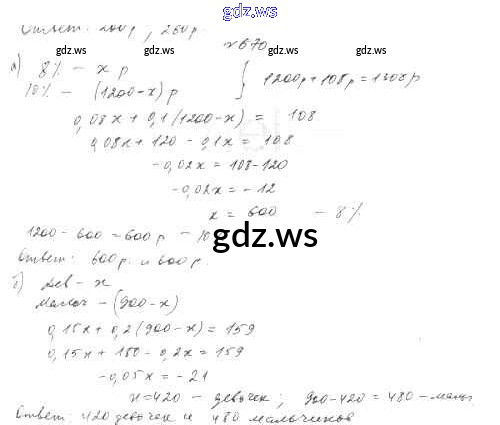 gdz.ws
Ответ: 200р; 260р.
gdz.ws gdz.ws gdz.ws
№670
а) 8% – x р
10% – (1200-x) р } 1200р+108р=1308р
0,08x+0,1(1200-x) = 108
0,08x+120-0,1x = 108
-0,02x = 108-120
-0,02x = -12
x = 600 – 8%
1200-600=600р – 10
gdz.ws
Ответ: 600р. и 600р.
б) Дев – x
Мальч – (900-x)
0,15x+0,2(900-x)=159
0,15x+180-0,2x=159
-0,05x=-21
x=420 – девочек; 900-420=480-мальч
Ответ: 420 девочек и 480 мальчиков
gdz.ws gdz.ws gdz.ws